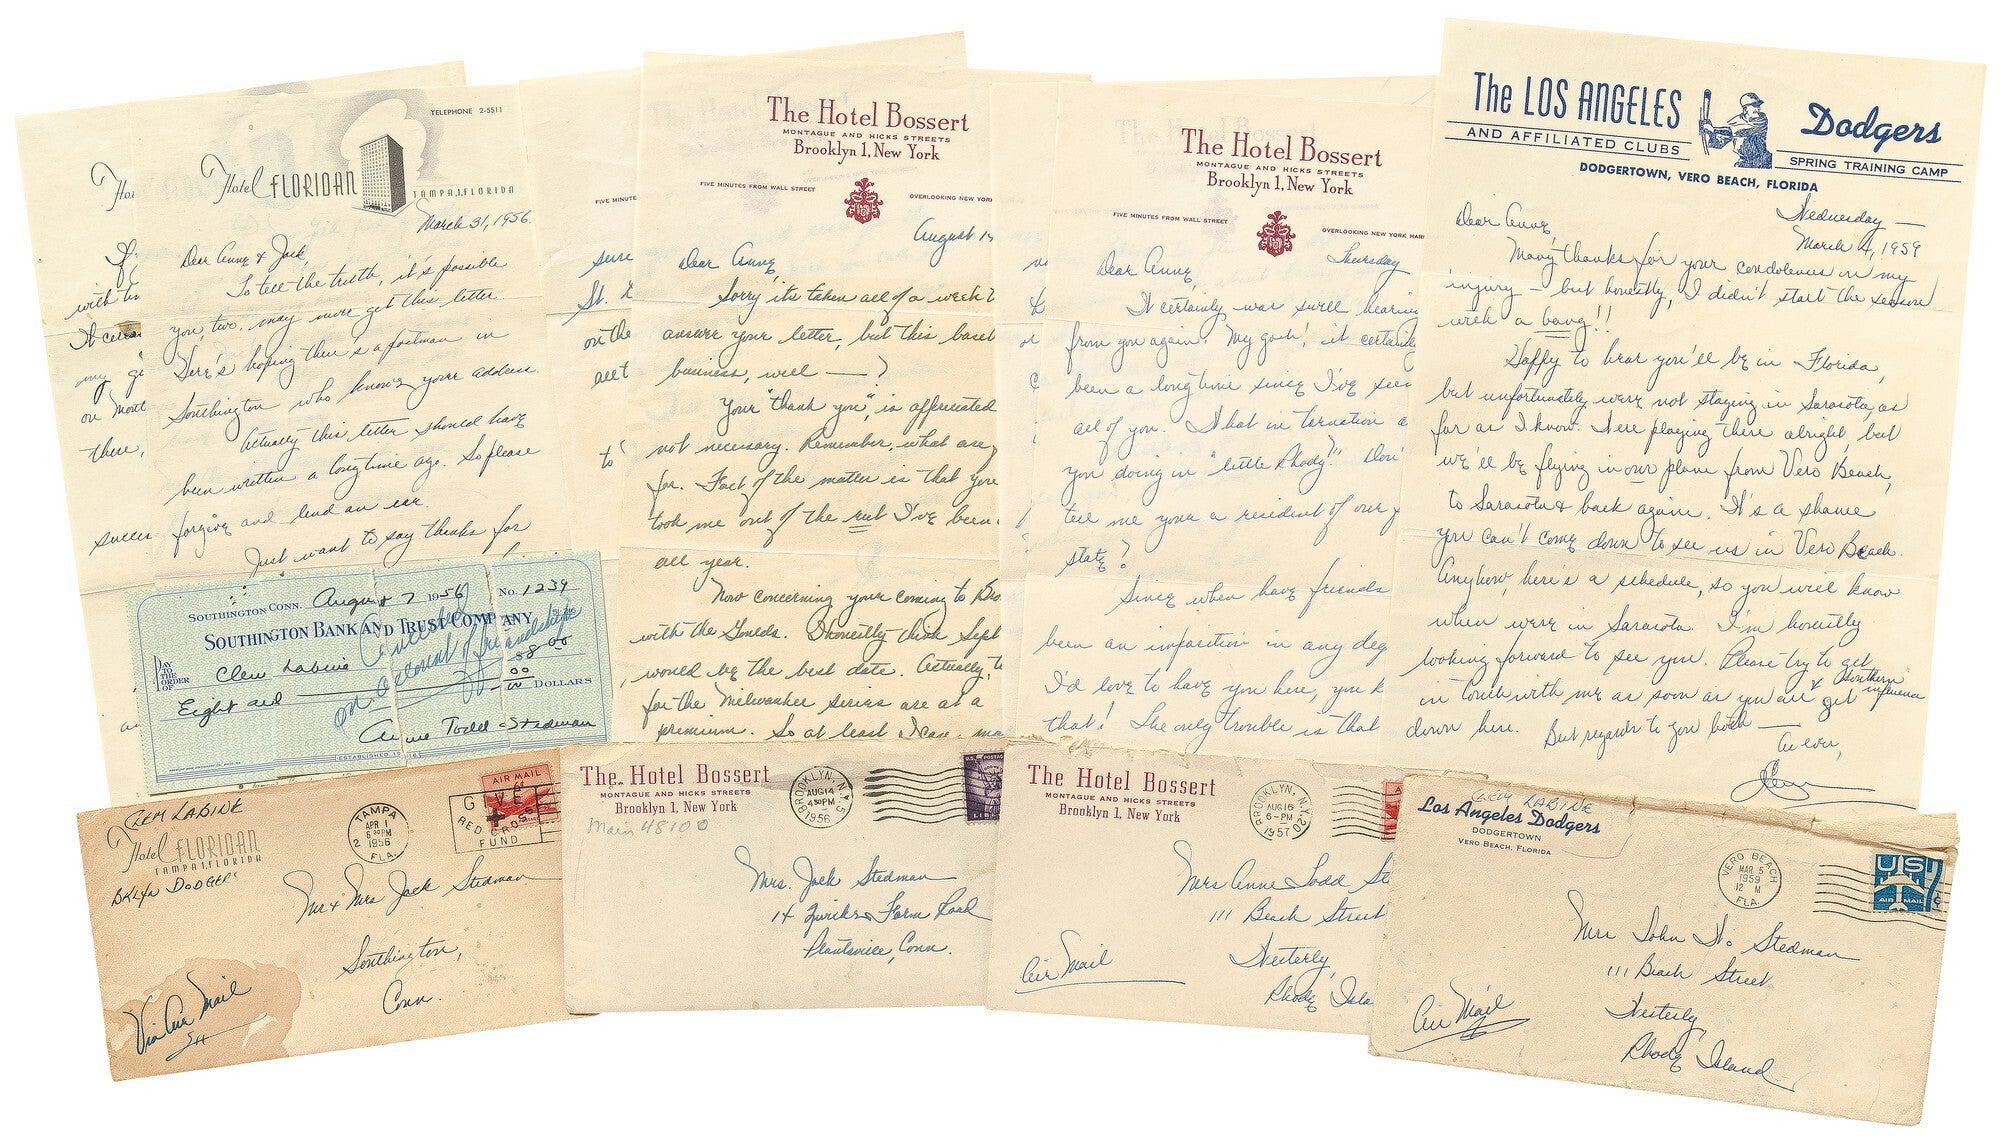 Hotel FLORIDAN
TELEPHONE 2-5511
TAMPA 1, FLORIDA
March 31, 1956.
Dear Anne & Jack,
To tell the truth, it's possible
you two may never get this letter.
Here's hoping there's a postman in
Southington who knows your address.
Actually this letter should have
been written a long time ago. So please
forgive and lend an ear.
Just want to say thanks for
with
my
on
there,
SOUTHINGTON CONN. August 7 1956 No. 1239
SOUTHINGTON BANK AND TRUST COMPANY
51-246
PAY TO THE ORDER OF Clem Labine $8.00
Eight and 00 DOLLARS
Cancelled
on account of friendship
Anne Todd Stedman
sure
St.
on the
all
to
The Hotel Bossert
MONTAGUE AND HICKS STREETS
Brooklyn 1, New York
FIVE MINUTES FROM WALL STREET
OVERLOOKING NEW YOR
August 1
Dear Anne,
Sorry its taken all of a week t
answer your letter, but this baseb
business, well — ?
Your "thank you", is appreciated
not necessary. Remember, what are
for. Fact of the matter is that you
took me out of the rut I've been
all year.
Now concerning your coming to Bro
with the Goulds. I honestly think Sept
would be the best date. Actually, t
for the Milwaukee series are at a
premium. So at least I can ma
The Hotel Bossert
MONTAGUE AND HICKS STREETS
Brooklyn 1, New York
FIVE MINUTES FROM WALL STREET
OVERLOOKING NEW YORK HAR
Thursday
Dear Anne,
It certainly was swell hearing
from you again. My gosh! it certainly
been a long time since I've seen
all of you. What in tarnation a
you doing in "little Rhody?" Don'
tell me your a resident of our f
state?
Since when have friends
been an imposition in any deg
I'd love to have you here, you k
that! The only trouble is that
The LOS ANGELES Dodgers
AND AFFILIATED CLUBS
SPRING TRAINING CAMP
DODGERTOWN, VERO BEACH, FLORIDA
Wednesday —
March 4, 1959
Dear Anne,
Many thanks for your condolences on my
injury — but honestly, I didn't start the season
with a bang!!
Happy to hear you'll be in Florida,
but unfortunately were not staying in Sarasota, as
far as I know. Were playing there alright, but
we'll be flying in our plane from Vero Beach,
to Sarasota & back again. It's a shame
you can't come down to see us in Vero Beach.
Anyhow, here's a schedule, so you will know
when were in Sarasota. I'm honestly
looking forward to see you. Please try to get
in touch with me as soon as you all get Southern influence
down here. Best regards to you both —
As ever,
Clem
CLEM LABINE
Hotel FLORIDAN
TAMPA 1, FLORIDA
BKLYN DODGERS
TAMPA
APR 1
6 30 PM
1956
2 FLA.
GIVE
RED CROSS
FUND
AIR MAIL
Mr & Mrs Jack Stedman
Southington,
Conn.
Via Air Mail
The Hotel Bossert
MONTAGUE AND HICKS STREETS
Brooklyn 1, New York
Main 48100
BROOKLYN, N.Y.
AUG 14
4 30 PM
1956
U.S. POSTAG
LIB
Mrs. Jack Stedman
14 Zwicks Farm Road
Plantsville, Conn.
The Hotel Bossert
MONTAGUE AND HICKS STREETS
Brooklyn 1, New York
BROOKLYN, N.Y.
AUG 16
6-PM
1957
Mrs Anne Todd St
111 Beach Street
Westerly,
Rhode Isla
Air Mail
CLEM LABINE
Los Angeles Dodgers
DODGERTOWN
VERO BEACH, FLORIDA
VERO BEACH
MAR 5
1959
12 M
FLA.
US
7¢
AIR MAIL
Mrs John W. Stedman
111 Beach Street
Westerly,
Rhode Island
Air Mail